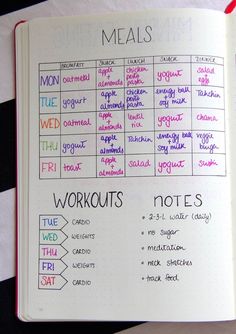 MEALS
BREAKFAST SNACK LUNCH SNACK DINNER
MON oatmeal apple + almonds chicken pesto pasta yogurt salad + eggs
TUE yogurt apple + almonds chicken pesto pasta energy ball + soy milk Tahchin
WED oatmeal apple + almonds lentil rice yogurt chana masala
THU yogurt apple + almonds Tahchin energy ball + soy milk veggie
FRI toast apple salad yogurt sushi
WORKOUTS
TUE CARDIO
WED WEIGHTS
THU CARDIO
FRI WEIGHTS
SAT CARDIO
NOTES
2-3L water (daily)
no sugar
meditation
neck stretches
track food